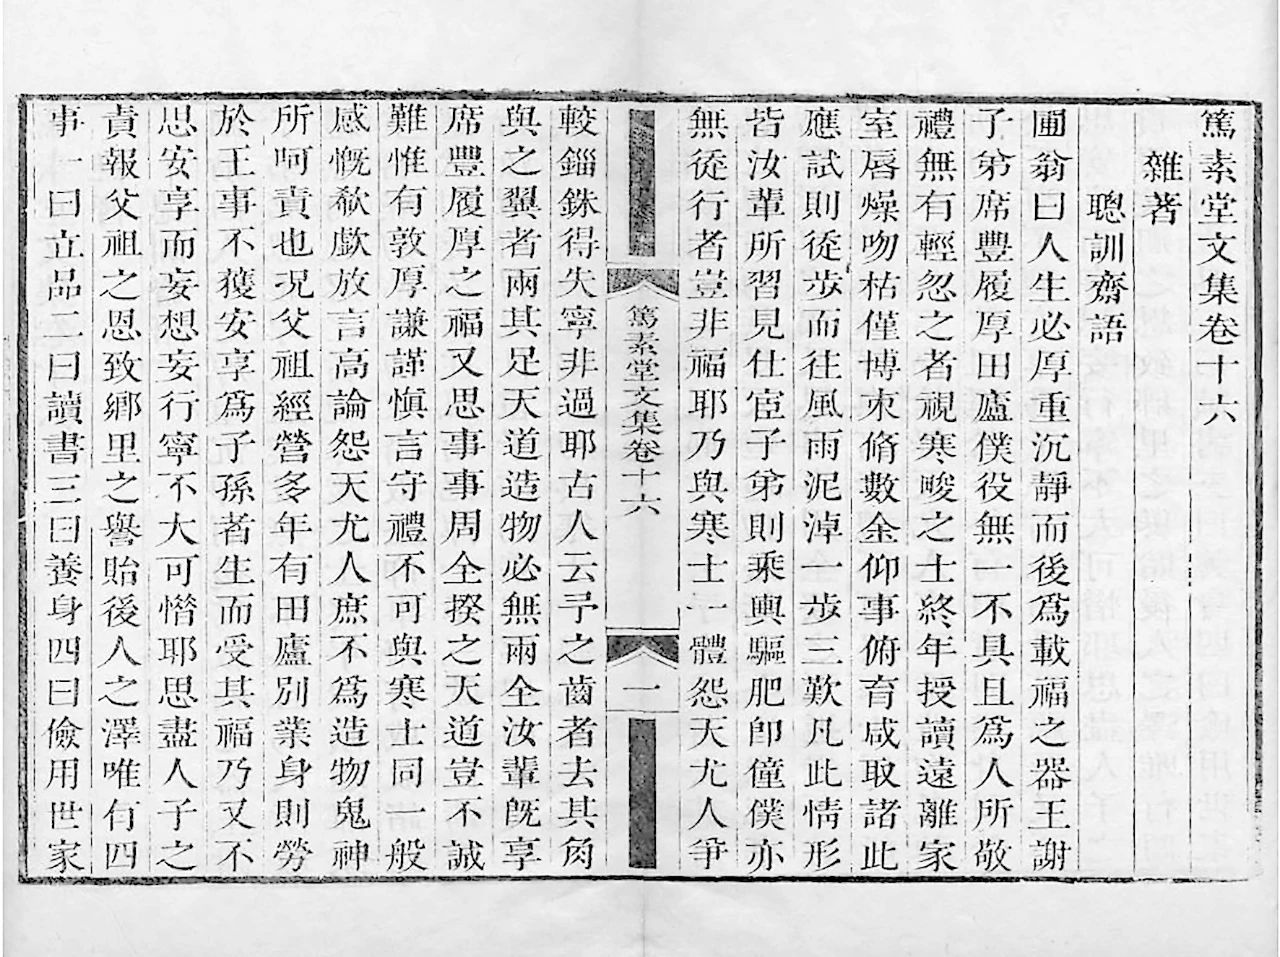 篤素堂文集卷十六
雜著
聰訓齋語
圃翁曰人生必厚重沉靜而後爲載福之器王謝
子弟席豐履厚田廬僕役無一不具且爲人所敬
禮無有輕忽之者視寒畯之士終年授讀遠離家
室唇燥吻枯僅博束脩數金仰事俯育咸取諸此
應試則徒步而往風雨泥淖一步三歎凡此情形
皆汝輩所習見仕宦子弟則乘輿驅肥即僮僕亦
無徒行者豈非福耶乃與寒士一體怨天尤人爭
篤素堂文集卷十六
一
較錙銖得失寧非過耶古人云予之齒者去其角
與之翼者兩其足天道造物必無兩全汝輩旣享
席豐履厚之福又思事事周全揆之天道豈不誠
難惟有敦厚謙謹慎言守禮不可與寒士同一般
感慨欷歔放言高論怨天尤人庶不爲造物鬼神
所呵責也況父祖經營多年有田廬別業身則勞
於王事不獲安享爲子孫者生而受其福乃又不
思安享而妄想妄行寧不大可惜耶思盡人子之
責報父祖之恩致鄉里之譽貽後人之澤唯有四
事一曰立品二曰讀書三曰養身四曰儉用世家